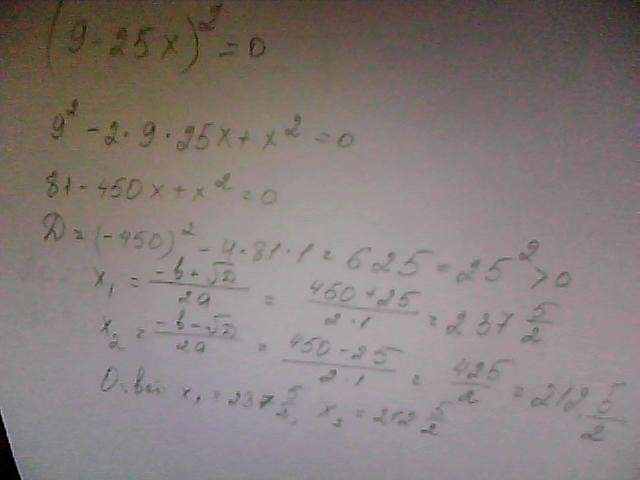 (9 - 25x)² = 0
9² - 2·9·25x + x² = 0
81 - 450x + x² = 0
D = (-450)² - 4·81·1 = 625 = 25² > 0
x₁ = (-b+√D)/2a = (450+25)/(2·1) = 237 5/2
x₂ = (-b-√D)/2a = (450-25)/(2·1) = 425/2 = 212 5/2
x₁ = 237 5/2, x₂ = 212 5/2